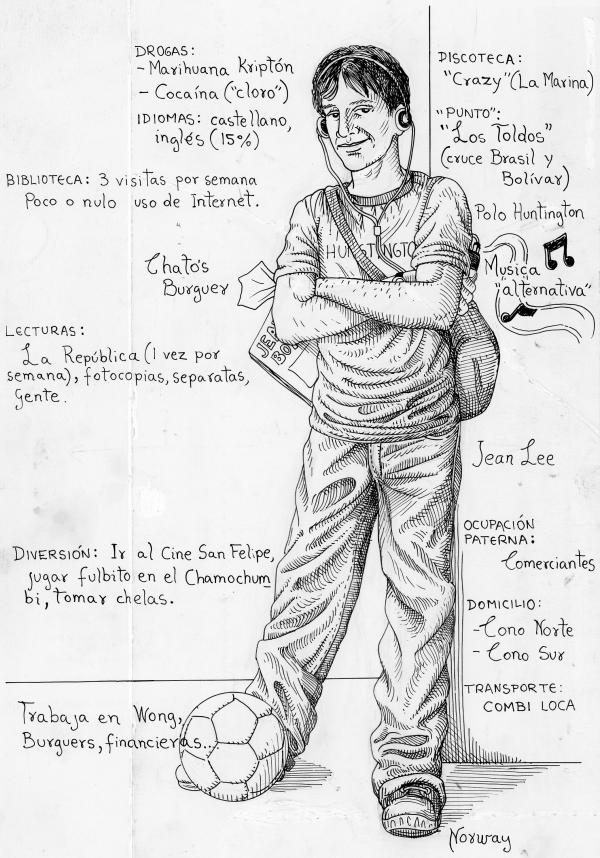 DROGAS:
- Marihuana Kriptón
- Cocaína ("cloro")
IDIOMAS: castellano,
inglés (15%)
BIBLIOTECA: 3 visitas por semana
Poco o nulo uso de Internet.
Chato's
Burguer
LECTURAS:
La República (1 vez por
semana), fotocopias, separatas,
Gente.
DIVERSIÓN: Ir al Cine San Felipe,
jugar fulbito en el Chamochum
bi, tomar chelas.
Trabaja en Wong,
Burguers, financieras...
HUNTINGTO
DISCOTECA:
"Crazy" (La Marina)
"PUNTO":
"Los Toldos"
(cruce Brasil y
Bolívar)
Polo Huntington
Musica
"alternativa"
Jean Lee
OCUPACIÓN
PATERNA:
Comerciantes
DOMICILIO:
- Cono Norte
- Cono Sur
TRANSPORTE:
COMBI LOCA
Norway